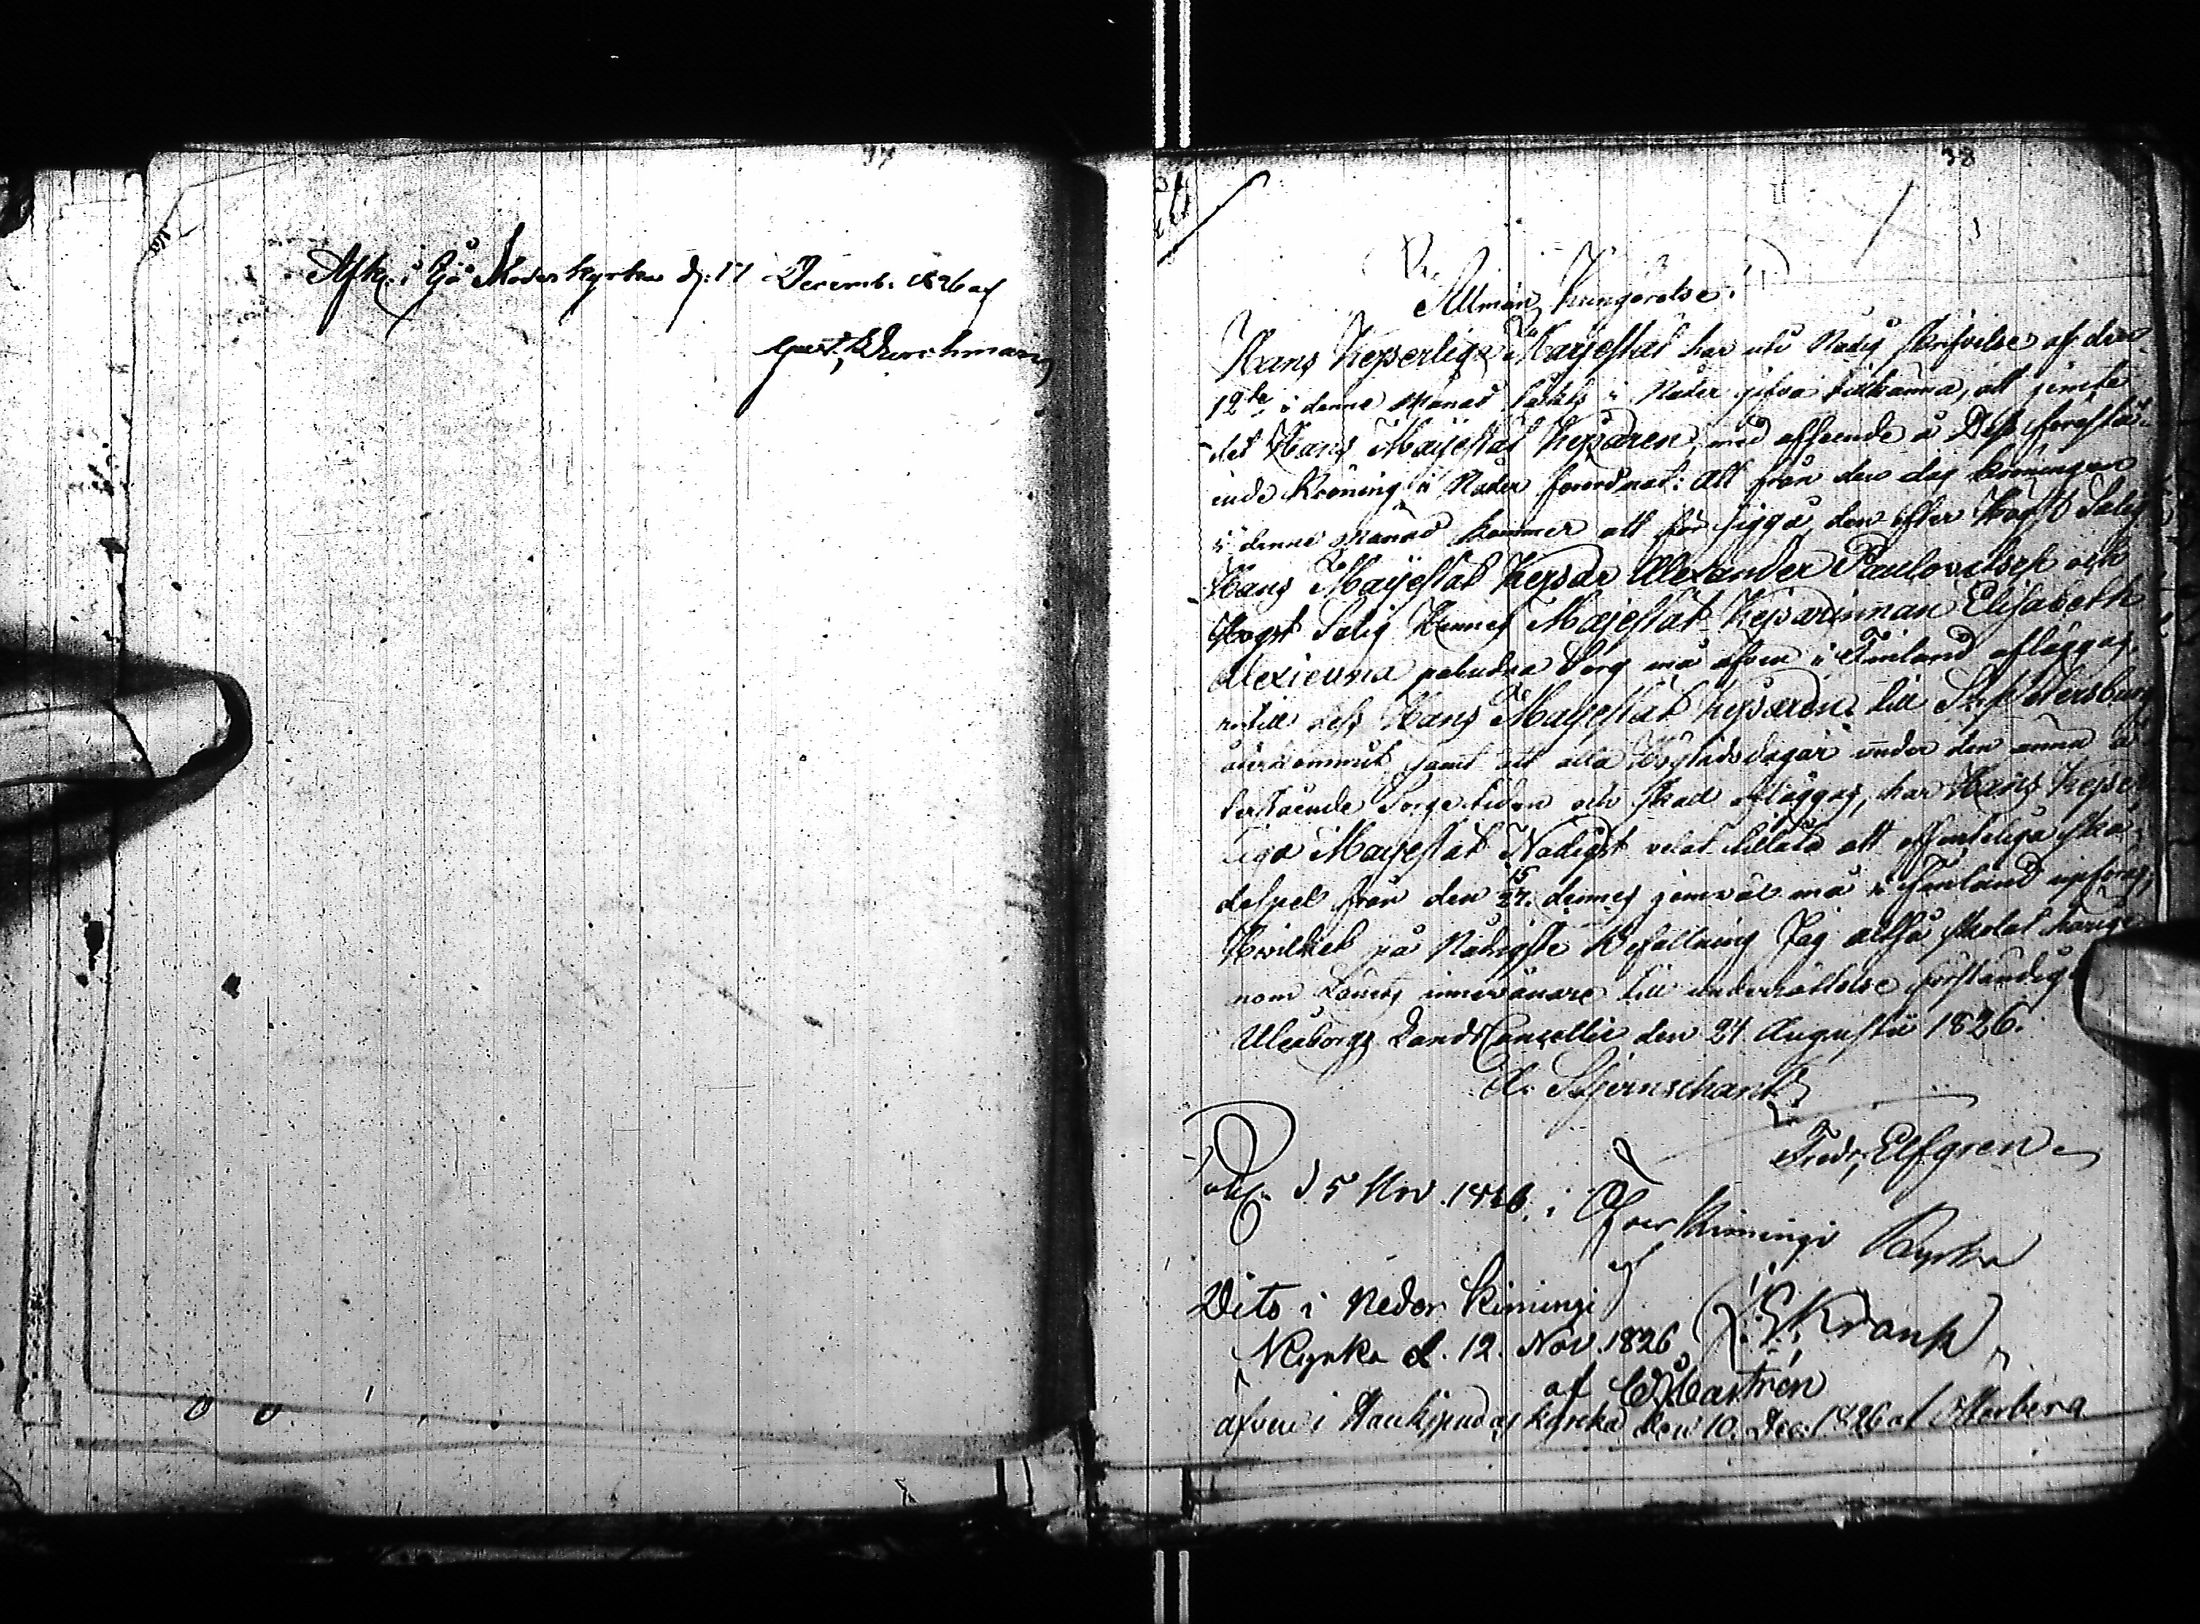 37
Afk. i Ijo Moderkyrka d. 17 Decemb. 1826 af
Gust. Durchman
38
Allmän Kungörelse.
Hans Kejserliga Majestät har uti Nådig skrifvelse af den
12te i denne Månad täckts i Nåder gifva tillkänna, att jemte
det Hans Majestät Kejsaren, med afseende å Dess förestå-
ende Kröning i Nåder förordnat: Att från den dag kröningen
i denne Månad kommer att för siggå, den efter Högst Salig
Hans Majestät Kejsar Alexander Paulovitsch och
Högst Salig Hennes Majestät Kejsarinnan Elisabeth
Alexievna paludna Sorg må äfven i Finland afläggas,
intill dess Hans Majestät Kejsaren till St. Petersburg
återkommit, samt att alla Högtidsdagar under den ännu å-
terstående Sorgetiden och skall afläggas, har Hans Kejser
liga Majestät Nådigst velat tillåta att offenteliga skå-
despel från den 15/27 dennes jemväl må i Finland upföras,
Hvilket på Nådigste Befallning Jag altså skolat härige-
nom Länets innevånare till underrättelse förständiga
Uleåborgs LandsCancellie den 24 Augusti 1826.
S. Stjernschantz
Fredr. Elfgren
d. 5 Nov. 1826. i Öfver Kiminge Kyrka
af
Dito i Neder Kiminge
J. E. Krank
Kyrka d. 12. Nov. 1826
af Castrén
äfven i Haukipudas kyrka den 10. Dec. 1826 af Österberg